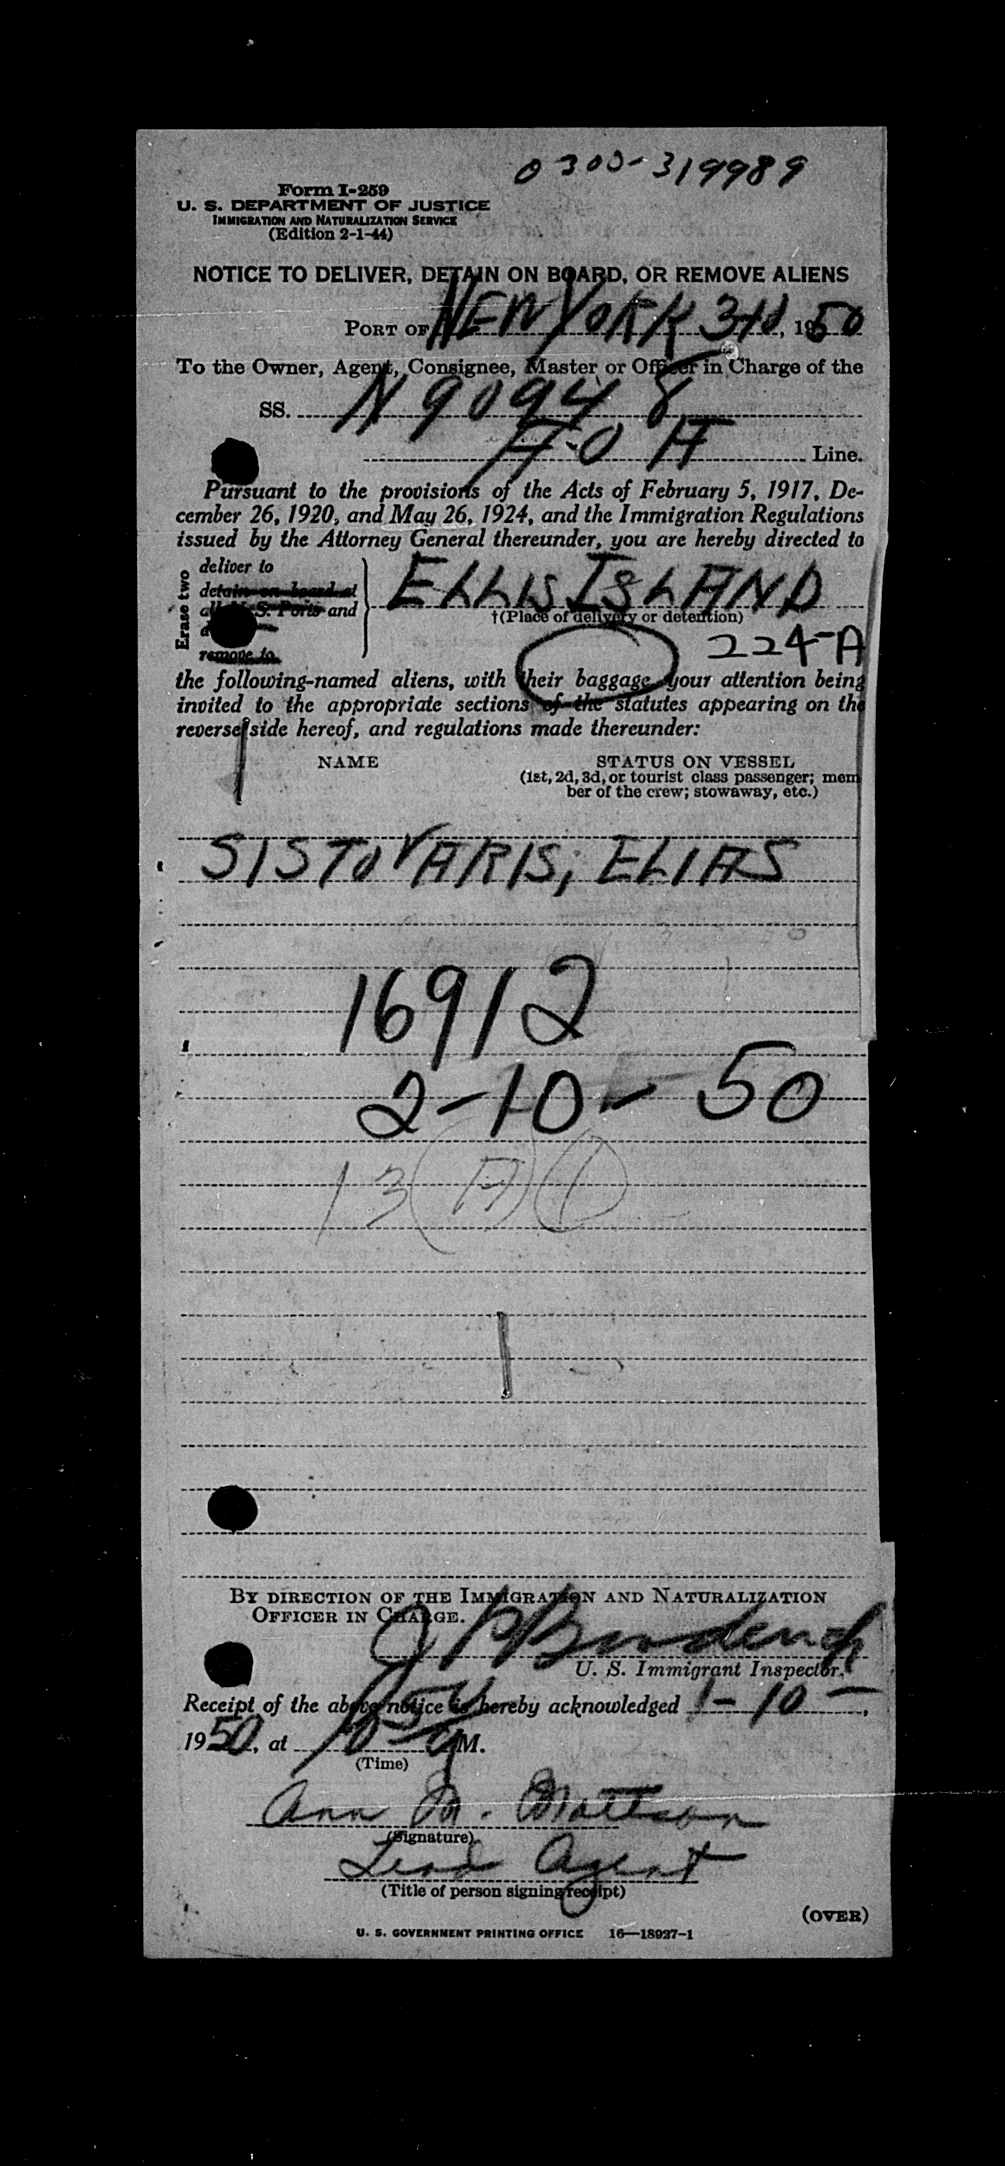 0300-319989
Form I-259
U. S. DEPARTMENT OF JUSTICE
IMMIGRATION AND NATURALIZATION SERVICE
(Edition 2-1-44)
NOTICE TO DELIVER, DETAIN ON BOARD, OR REMOVE ALIENS
PORT OF NEW YORK 1950
To the Owner, Agent, Consignee, Master or Officer in Charge of the
SS. N 90948
A O A Line.
Pursuant to the provisions of the Acts of February 5, 1917, De-
cember 26, 1920, and May 26, 1924, and the Immigration Regulations
issued by the Attorney General thereunder, you are hereby directed to
Erase two
deliver to
detain on board at
all U.S. Ports and
remove to
ELLIS ISLAND
†(Place of delivery or detention)
224-A
the following-named aliens, with their baggage, your attention being
invited to the appropriate sections of the statutes appearing on the
reverse side hereof, and regulations made thereunder:
NAME STATUS ON VESSEL
(1st, 2d, 3d, or tourist class passenger; mem
ber of the crew; stowaway, etc.)
SISTOVARIS, ELIAS
16912
2-10-50
13 (A) (1)
BY DIRECTION OF THE IMMIGRATION AND NATURALIZATION
OFFICER IN CHARGE.
U. S. Immigrant Inspector.
Receipt of the above notice is hereby acknowledged 1-10-,
1950, at M.
(Time)
Ann M. Mattson
(Signature)
Lead Agent
(Title of person signing receipt)
(OVER)
U. S. GOVERNMENT PRINTING OFFICE 16—18927-1